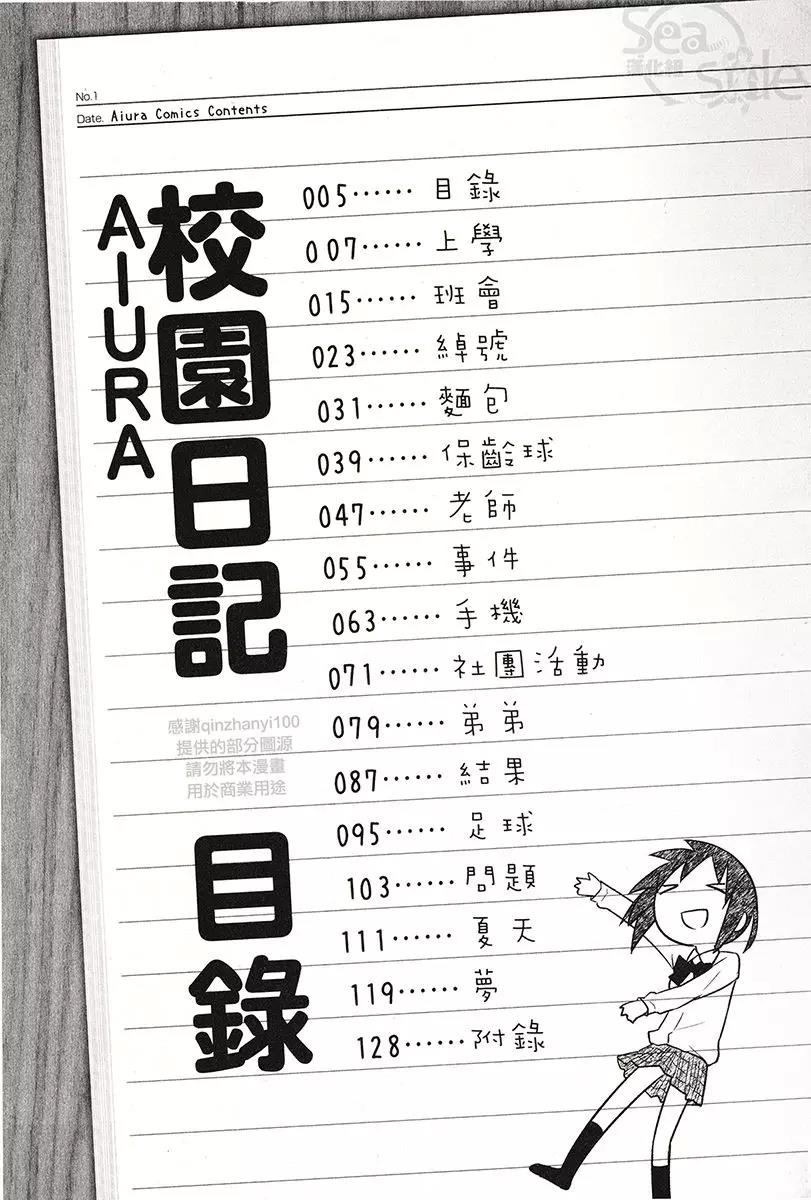 Sea
side
漢化組
No.1
Date. Aiura Comics Contents
校園日記
AIURA
目錄
005…… 目錄
007…… 上學
015…… 班會
023…… 綽號
031…… 麵包
039…… 保齡球
047…… 老師
055…… 事件
063…… 手機
071…… 社團活動
079…… 弟弟
087…… 結果
095…… 足球
103…… 問題
111…… 夏天
119…… 夢
128…… 附錄
感謝qinzhanyi100
提供的部分圖源
請勿將本漫畫
用於商業用途